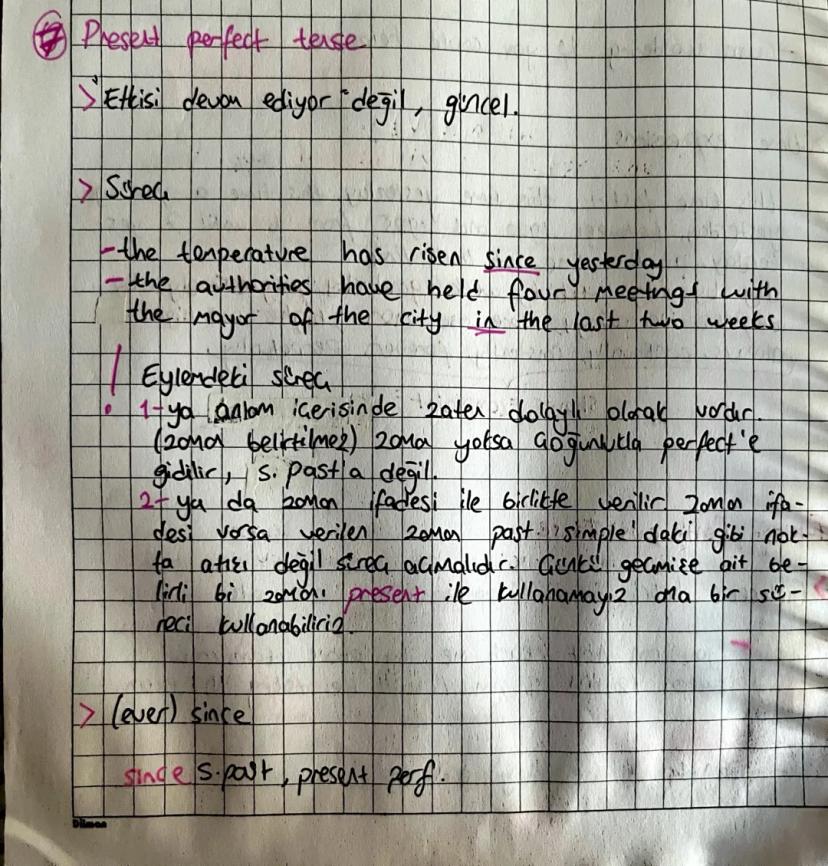 Present perfect tense
> "Etkisi devam ediyor" değil, güncel.
> Süreç
- the temperature has risen since yesterday.
- the authorities have held four meetings with
the mayor of the city in the last two weeks
! Eylemdeki süreç
1- ya anlam içerisinde zaten dolaylı olarak vardır.
(zaman belirtilmez) zaman yoksa çoğunlukla perfect'e
gidilir, s. past'a değil.
2- ya da zaman ifadesi ile birlikte verilir zaman ifa-
desi varsa verilen zaman past simple'daki gibi nok-
ta atışı değil süreç açmalıdır. Çünkü geçmişe ait be-
lirli bi zamanı present ile kullanamayız ama bir sü-
reci kullanabiliriz.
> (ever) since
since s.past, present perf.
Dilman